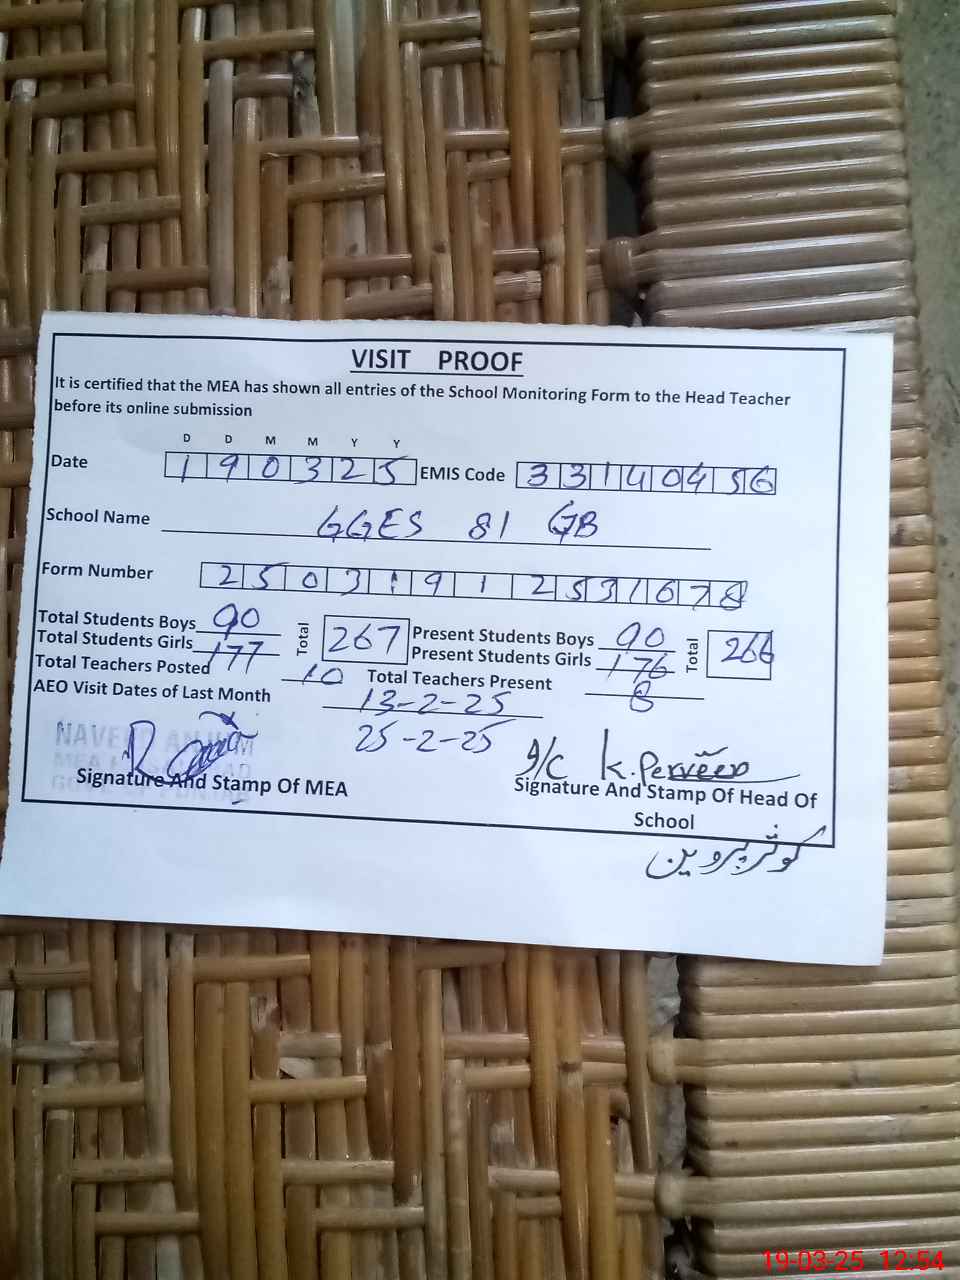 VISIT PROOF
It is certified that the MEA has shown all entries of the School Monitoring Form to the Head Teacher
before its online submission
D D M M Y Y
Date 190325 EMIS Code 33140456
School Name GGES 81 GB
Form Number 2503191 2531678
Total Students Boys 90 Total 267 Present Students Boys 90 Total 266
Total Students Girls 177 Present Students Girls 176
Total Teachers Posted 10 Total Teachers Present 8
AEO Visit Dates of Last Month 13-2-25
25-2-25
I/C K. Perveen
Signature And Stamp Of MEA
Signature And Stamp Of Head Of
School
کوثر پروین
19-03-25 12:54